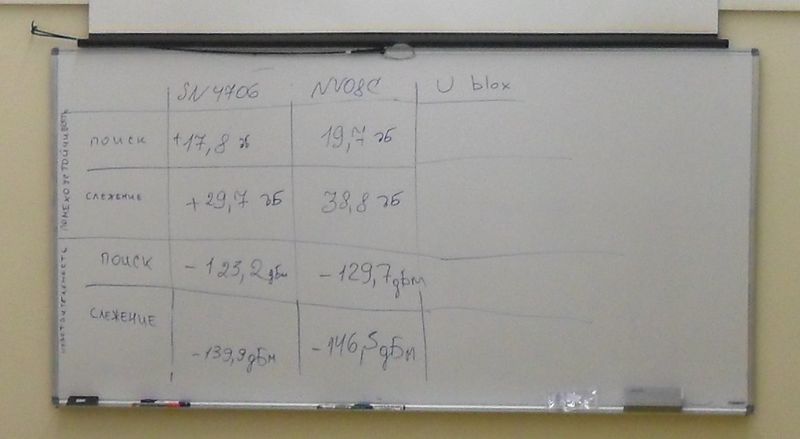 SN4706 NV08C U blox
помехоустойчивость
поиск +17,8 дБ 19,7 дБ
слежение +29,7 дБ 38,8 дБ
чувствительность
поиск -123,2 дБм -129,7 дБм
слежение -139,9 дБм -146,5 дБм